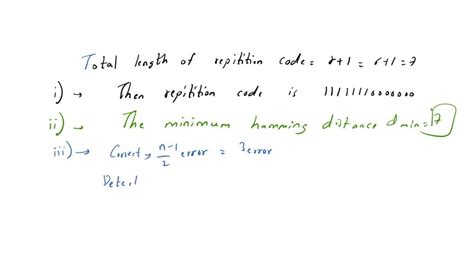 Total length of repitition code = r+1 = 6+1 = 7
i) → Then repitition code is 11111110000000
ii) → The minimum hamming distance dmin = 7
iii) → Correct → n-1/2 error = 3 error
Detect